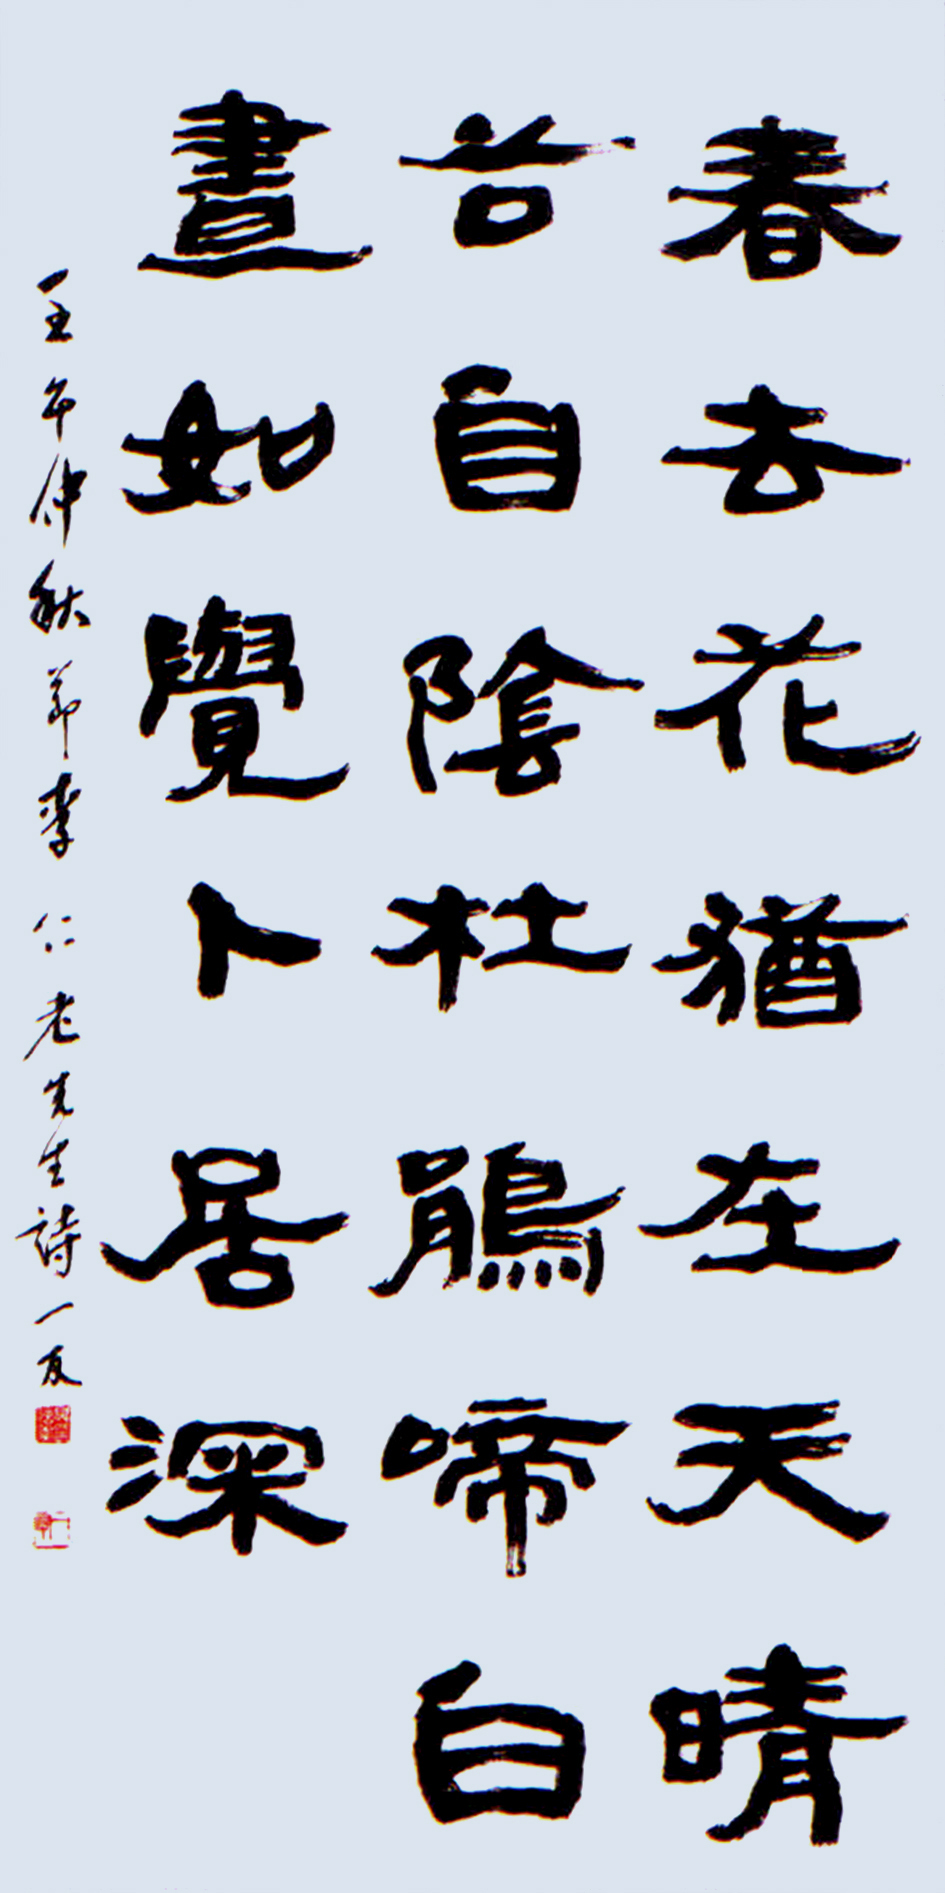 春去花猶在天晴
谷自陰杜鵑啼白
晝如覺卜居深
壬午仲秋節李仁老先生詩一友